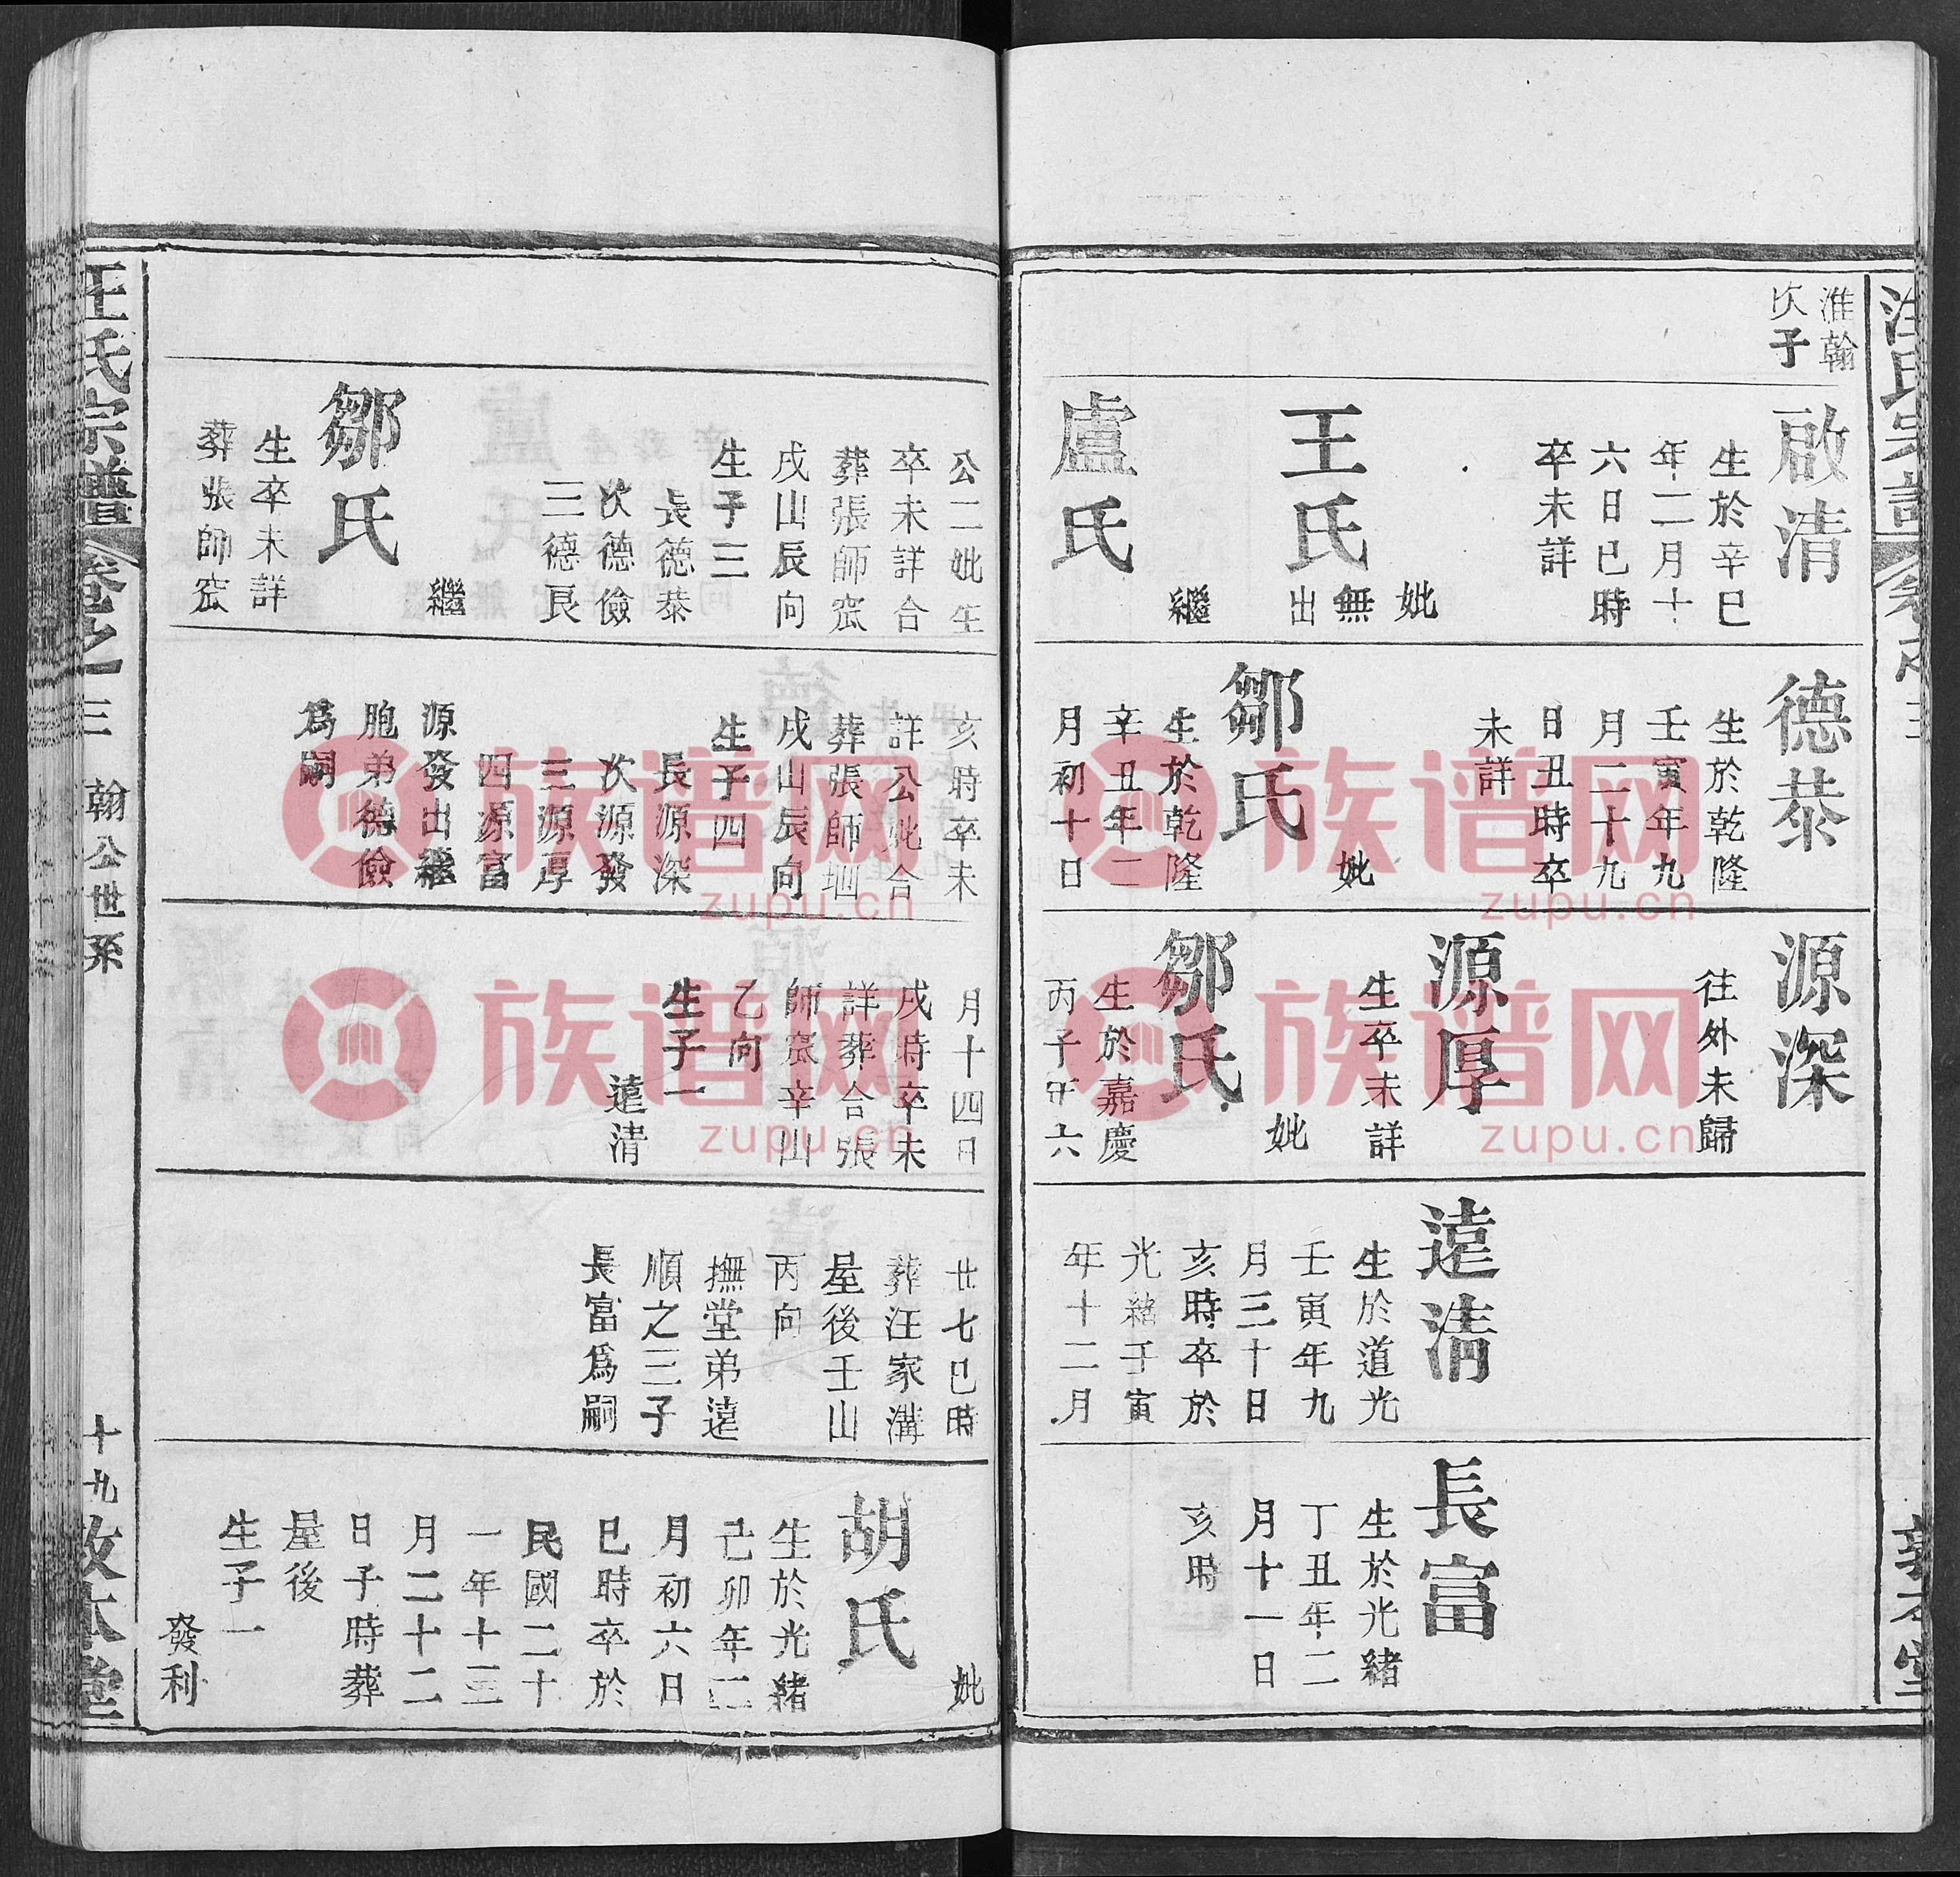 汪氏宗譜
卷之三
敦本堂
淮翰
次子
啟清
生於辛巳
年二月十
六日巳時
卒未詳
妣
王氏
無
出
繼
盧氏
德恭
生於乾隆
壬寅年九
月二十九
日丑時卒
未詳
妣
鄒氏
生於乾隆
辛丑年二
月初十日
源深
往外未歸
源厚
生卒未詳
妣
鄒氏
生於嘉慶
丙子年六
遠清
生於道光
壬寅年九
月三十日
亥時卒於
光緒壬寅
年十二月
長富
生於光緒
丁丑年二
月十一日
亥時
公二妣生
卒未詳合
葬張師窊
戌山辰向
生子三
長德恭
次德儉
三德良
繼
鄒氏
生卒未詳
葬張師窊
亥時卒未
詳公妣合
葬張師堌
戌山辰向
生子四
長源深
次源發
三源厚
四源富
源發出繼
胞弟德儉
為嗣
月十四日
戌時卒未
詳葬合張
師窊辛山
乙向
生子一
遠清
廿七巳時
葬汪家溝
屋後壬山
丙向
撫堂弟遠
順之三子
長富為嗣
妣
胡氏
生於光緒
己卯年二
月初六日
巳時卒於
民國二十
一年十三
月二十二
日子時葬
屋後
生子一
發利
汪氏宗譜
卷之三
翰公世系
十九
敦本堂
族谱网
zupu.cn
族谱网
zupu.cn
族谱网
zupu.cn
族谱网
zupu.cn